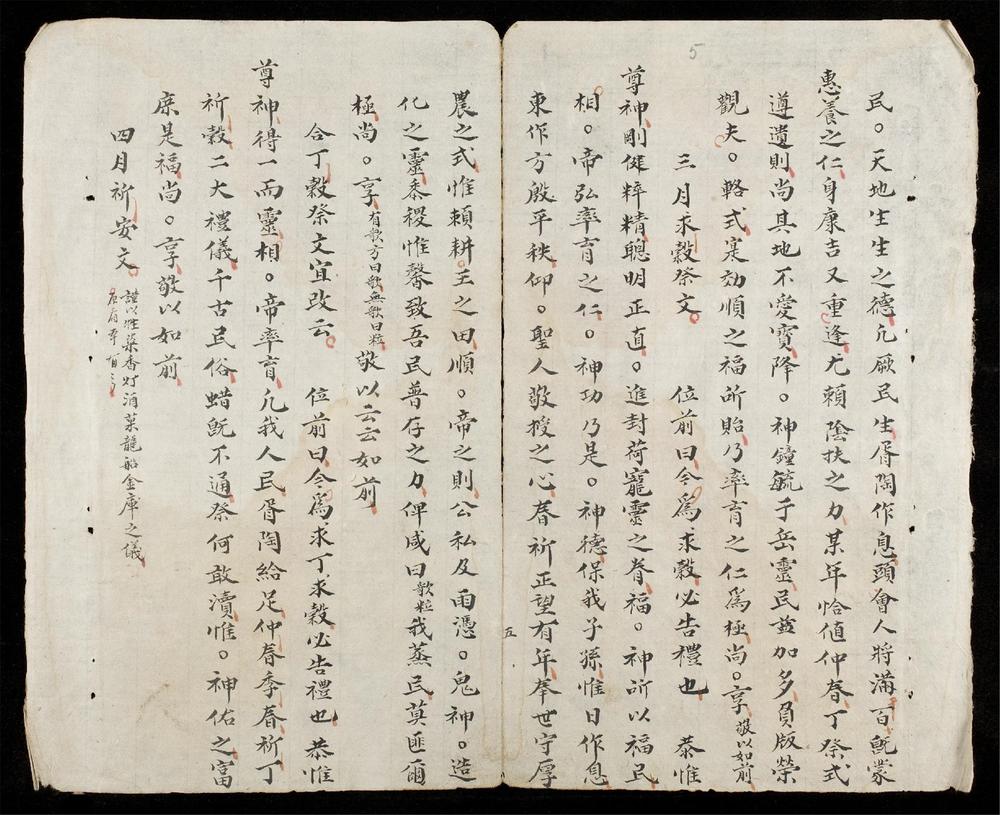 民。天地生生之德凢厥民生胥陶作息頭會人將滿百既蒙
惠養之仁身康吉又重逢尤賴陰扶之力某年恰値仲春丁祭式
遵遺則尚其地不愛寶降。神鐘毓于岳靈民益加多負版榮
觀夫。輅式寔効順之福所貽乃率育之仁爲極尚。享敬以如前
三月求穀祭文。 位前曰今爲求穀必告禮也 恭惟
尊神剛健粹精聰明正直。進封荷寵靈之眷福。神所以福民
相。帝弘率育之仁。神功乃是。神德保我子孫惟日作息
東作方殷平秩仰。聖人敬授之心春祈正望有年奉世守厚
農之式惟頼耕王之田順。帝之則公私及雨憑。鬼神。造
化之靈黍稷惟馨致吾民普存之力俾咸曰歌粒我蒸民莫匪爾
極尚。享有歌方曰歌無歌曰粒敬以云云如前
合丁穀祭文宜改云。 位前曰今爲求丁求穀必告禮也 恭惟
尊神得一而靈相。帝率育凢我人民胥陶給足仲春季春祈丁
祈穀二大禮儀千古民俗蜡既不通祭何敢瀆惟。神佑之富
庶是福尚。享敬以如前
四月祈安文。謹以牲粢香灯酒菓龍船金庫之儀
5
五